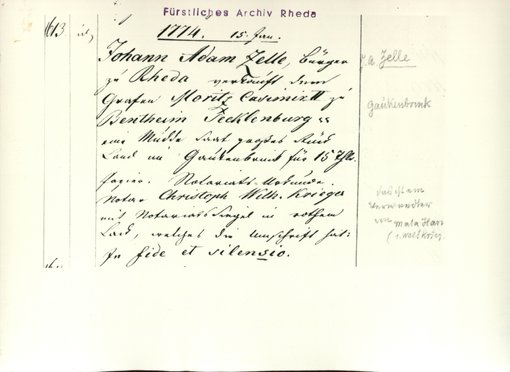 Fürstliches Archiv Rheda
1774. 15. Jan.
Johann Adam Zelle, Bürger
zu Rheda verkauft dem
Grafen Moritz Casimir II zu
Bentheim Tecklenburg
eine Müdde Saat großes Stück
Land im Gaukenbrink für 15
Notariats-Urkunde.
Notar Christoph Wilh. Krüger
mit Notariatssiegel in rothem
Lack, welches die Umschrift hat:
In fide et silensio.
J. A. Zelle
Gaukenbrink
das ist ein
Verwandter
von Mata Hari